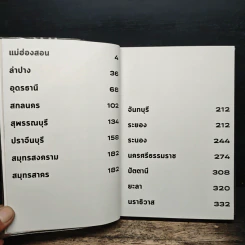 แม่ฮ่องสอน 4
ลำปาง 36
อุดรธานี 68
สกลนคร 102
สุพรรณบุรี 134
ปราจีนบุรี 158
สมุทรสงคราม 182
สมุทรสาคร 182
จันทบุรี 212
ระยอง 212
ระนอง 244
นครศรีธรรมราช 274
ปัตตานี 308
ยะลา 320
นราธิวาส 332